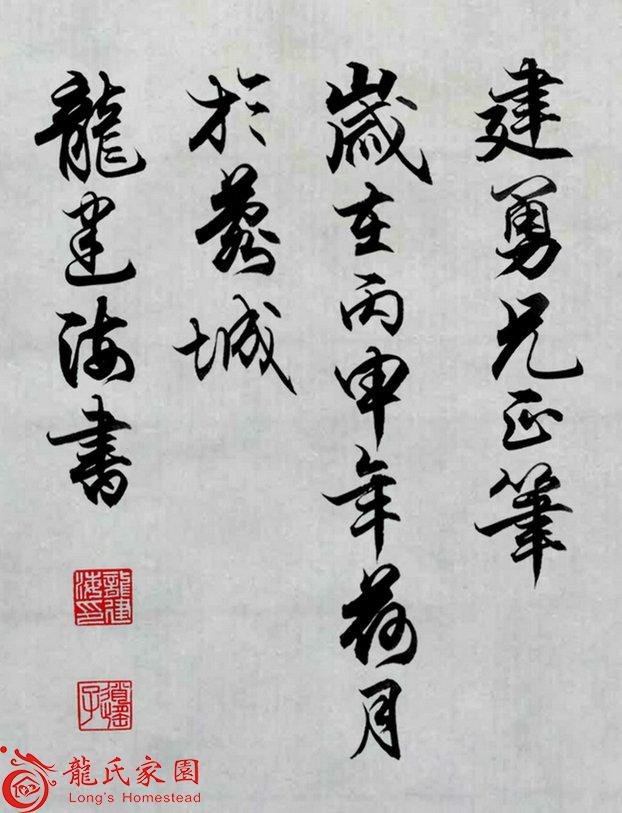 建勇兄正筆
歲在丙申年荷月
於城
龍建海書
龍建海印
逍遙子
龍氏家園
Long's Homestead